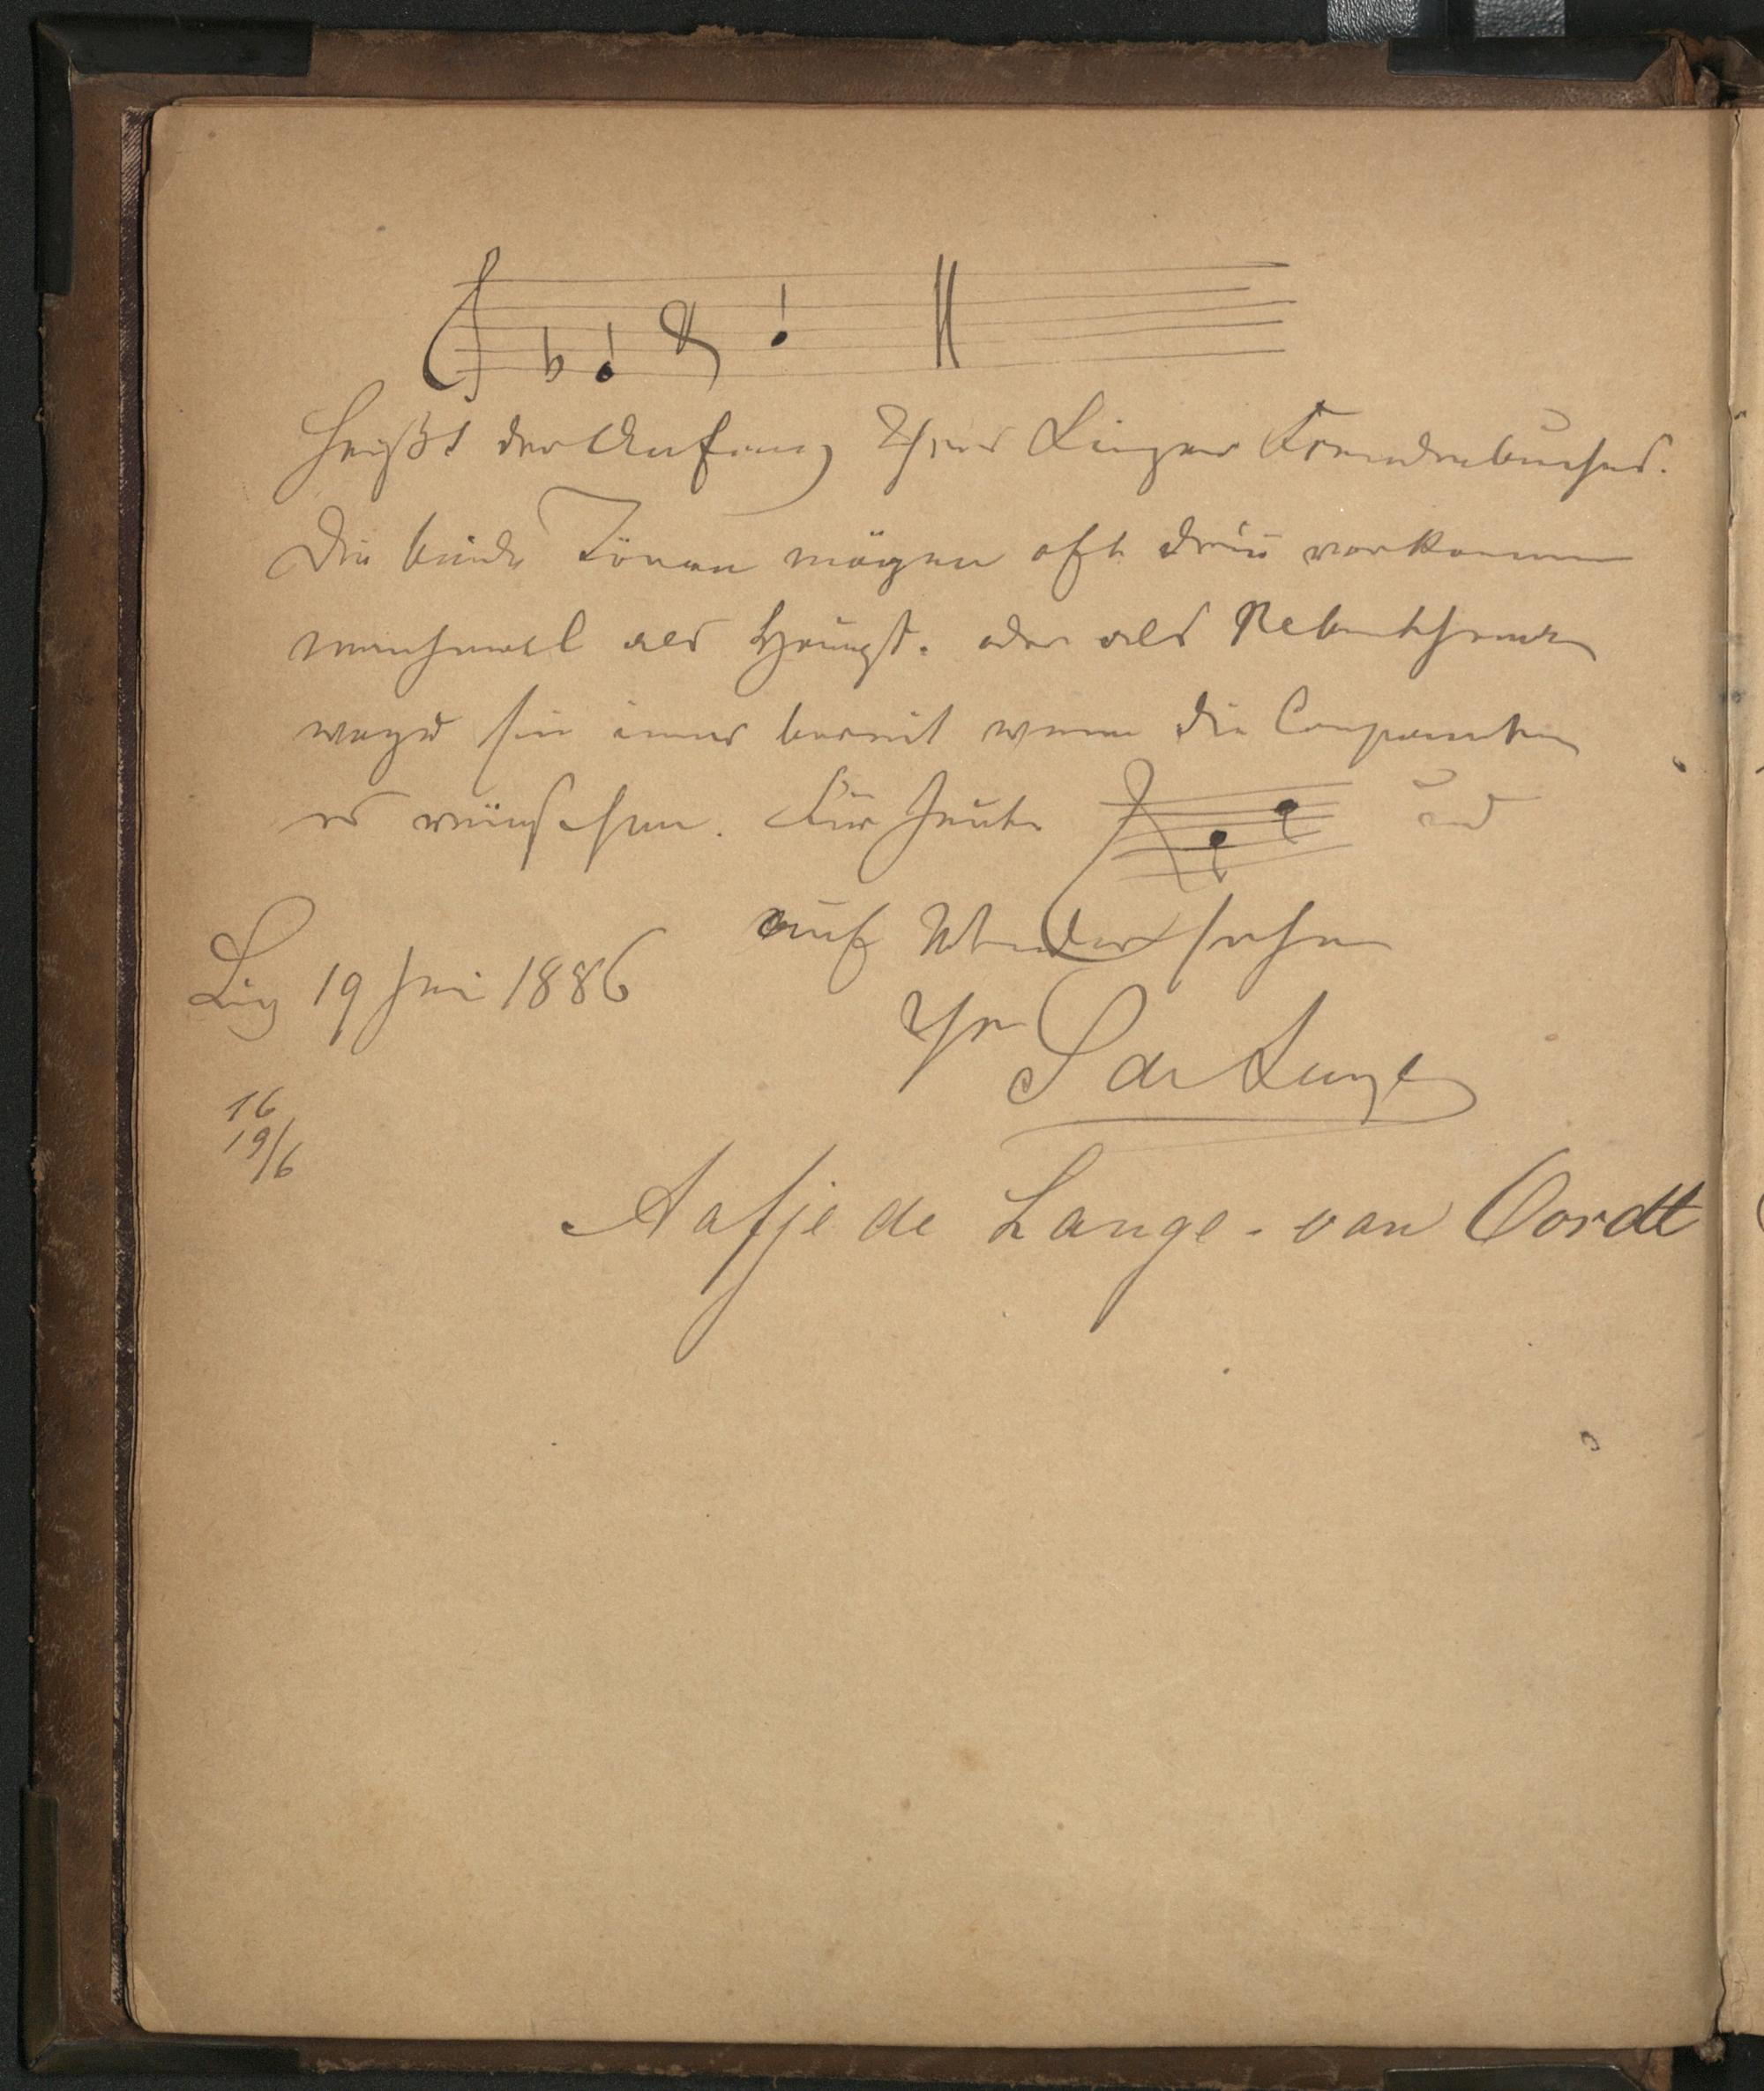 heißt der Anfang Ihres Linzer Fremdenbuches.
Die beide Tönen mögen oft drin vorkommen
manchmal als Haupt- oder als Nebenthema
sie immer bereit wenn die Componisten
es wünschen. Für heute und
auf Wiedersehen
Linz 19 Juni 1886
Ihr S de Lange
16
19/6
Aafje de Lange - van Oordt